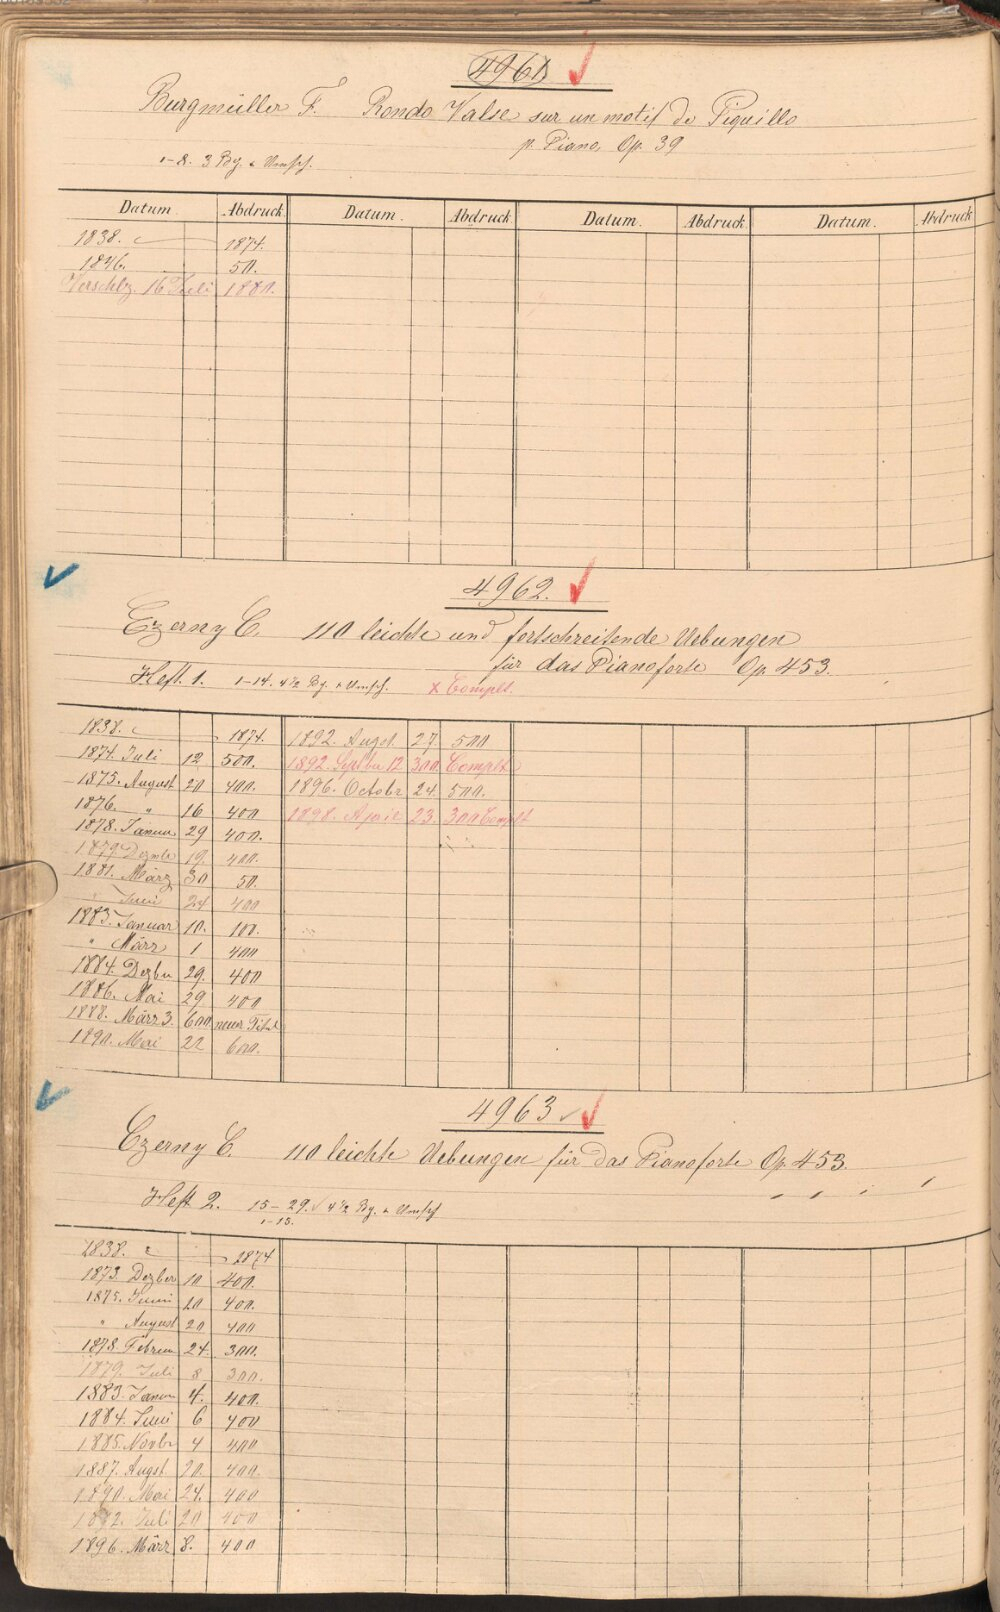 4961
Burgmüller F. Rondo Valse sur un motif de Piquillo
p. Piano, Op. 39
1-8. 3 Bg. + Umsch.
Datum. Abdruck Datum. Abdruck Datum. Abdruck Datum. Abdruck
1838. 1874.
1846. 50.
Verschlg. 16 Juli 1880.
4962.
Czerny C. 110 leichte und fortschreitende Uebungen
für das Pianoforte Op. 453.
Heft 1. 1-14. 4½ Bg. + Umsch. x Complt.
1838. 1874. 1892. Augst. 27 500
1874. Juli 12 500. 1892. Septbr 12 300. Complt
1875. August 20 400. 1896. Octobr 24. 500.
1876. " 16 400 1898. April 23. 300 Complt
1878. Januar 29 400.
1879. Dezmbr 19. 400
1881. März 30 50.
" Juni 24 400
1883. Januar 10. 100.
" März 1 400
1884. Dezbr 29. 400
1886. Mai 29 400
1888. März 3. 600. neuer Titel
1890. Mai 22 600.
4963
Czerny C. 110 leichte Uebungen für das Pianoforte Op. 453.
Heft 2. 15-29. 4½ Bg. + Umsch
1-15.
1838. 1874
1873. Dezber 10 400.
1875. Juni 20 400.
" August 20 400
1878. Februar 24. 300.
1879. Juli 8 300.
1883. Januar 4. 400.
1884. Juni 6 400
1885. Novbr 4 400
1887. Augst. 20. 400.
1890. Mai 24. 400
1892. Juli 20 400
1896. März 8. 400